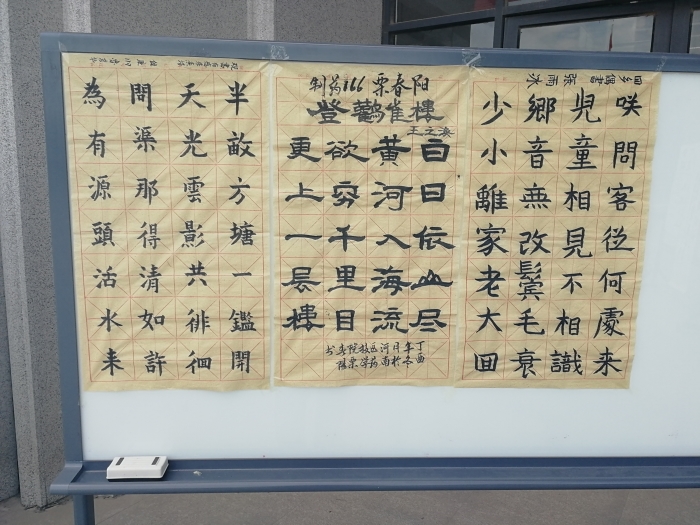 半畝方塘一鑑開
天光雲影共徘徊
問渠那得清如許
為有源頭活水来
制药166 栗春阳
登鸛雀樓
王之涣
白日依山尽
黄河入海流
欲穷千里目
更上一层樓
丁酉
年冬
囬乡偶書 張雨水
少小離家老大囬
鄉音無改鬢毛衰
児童相見不相識
咲問客從何處来